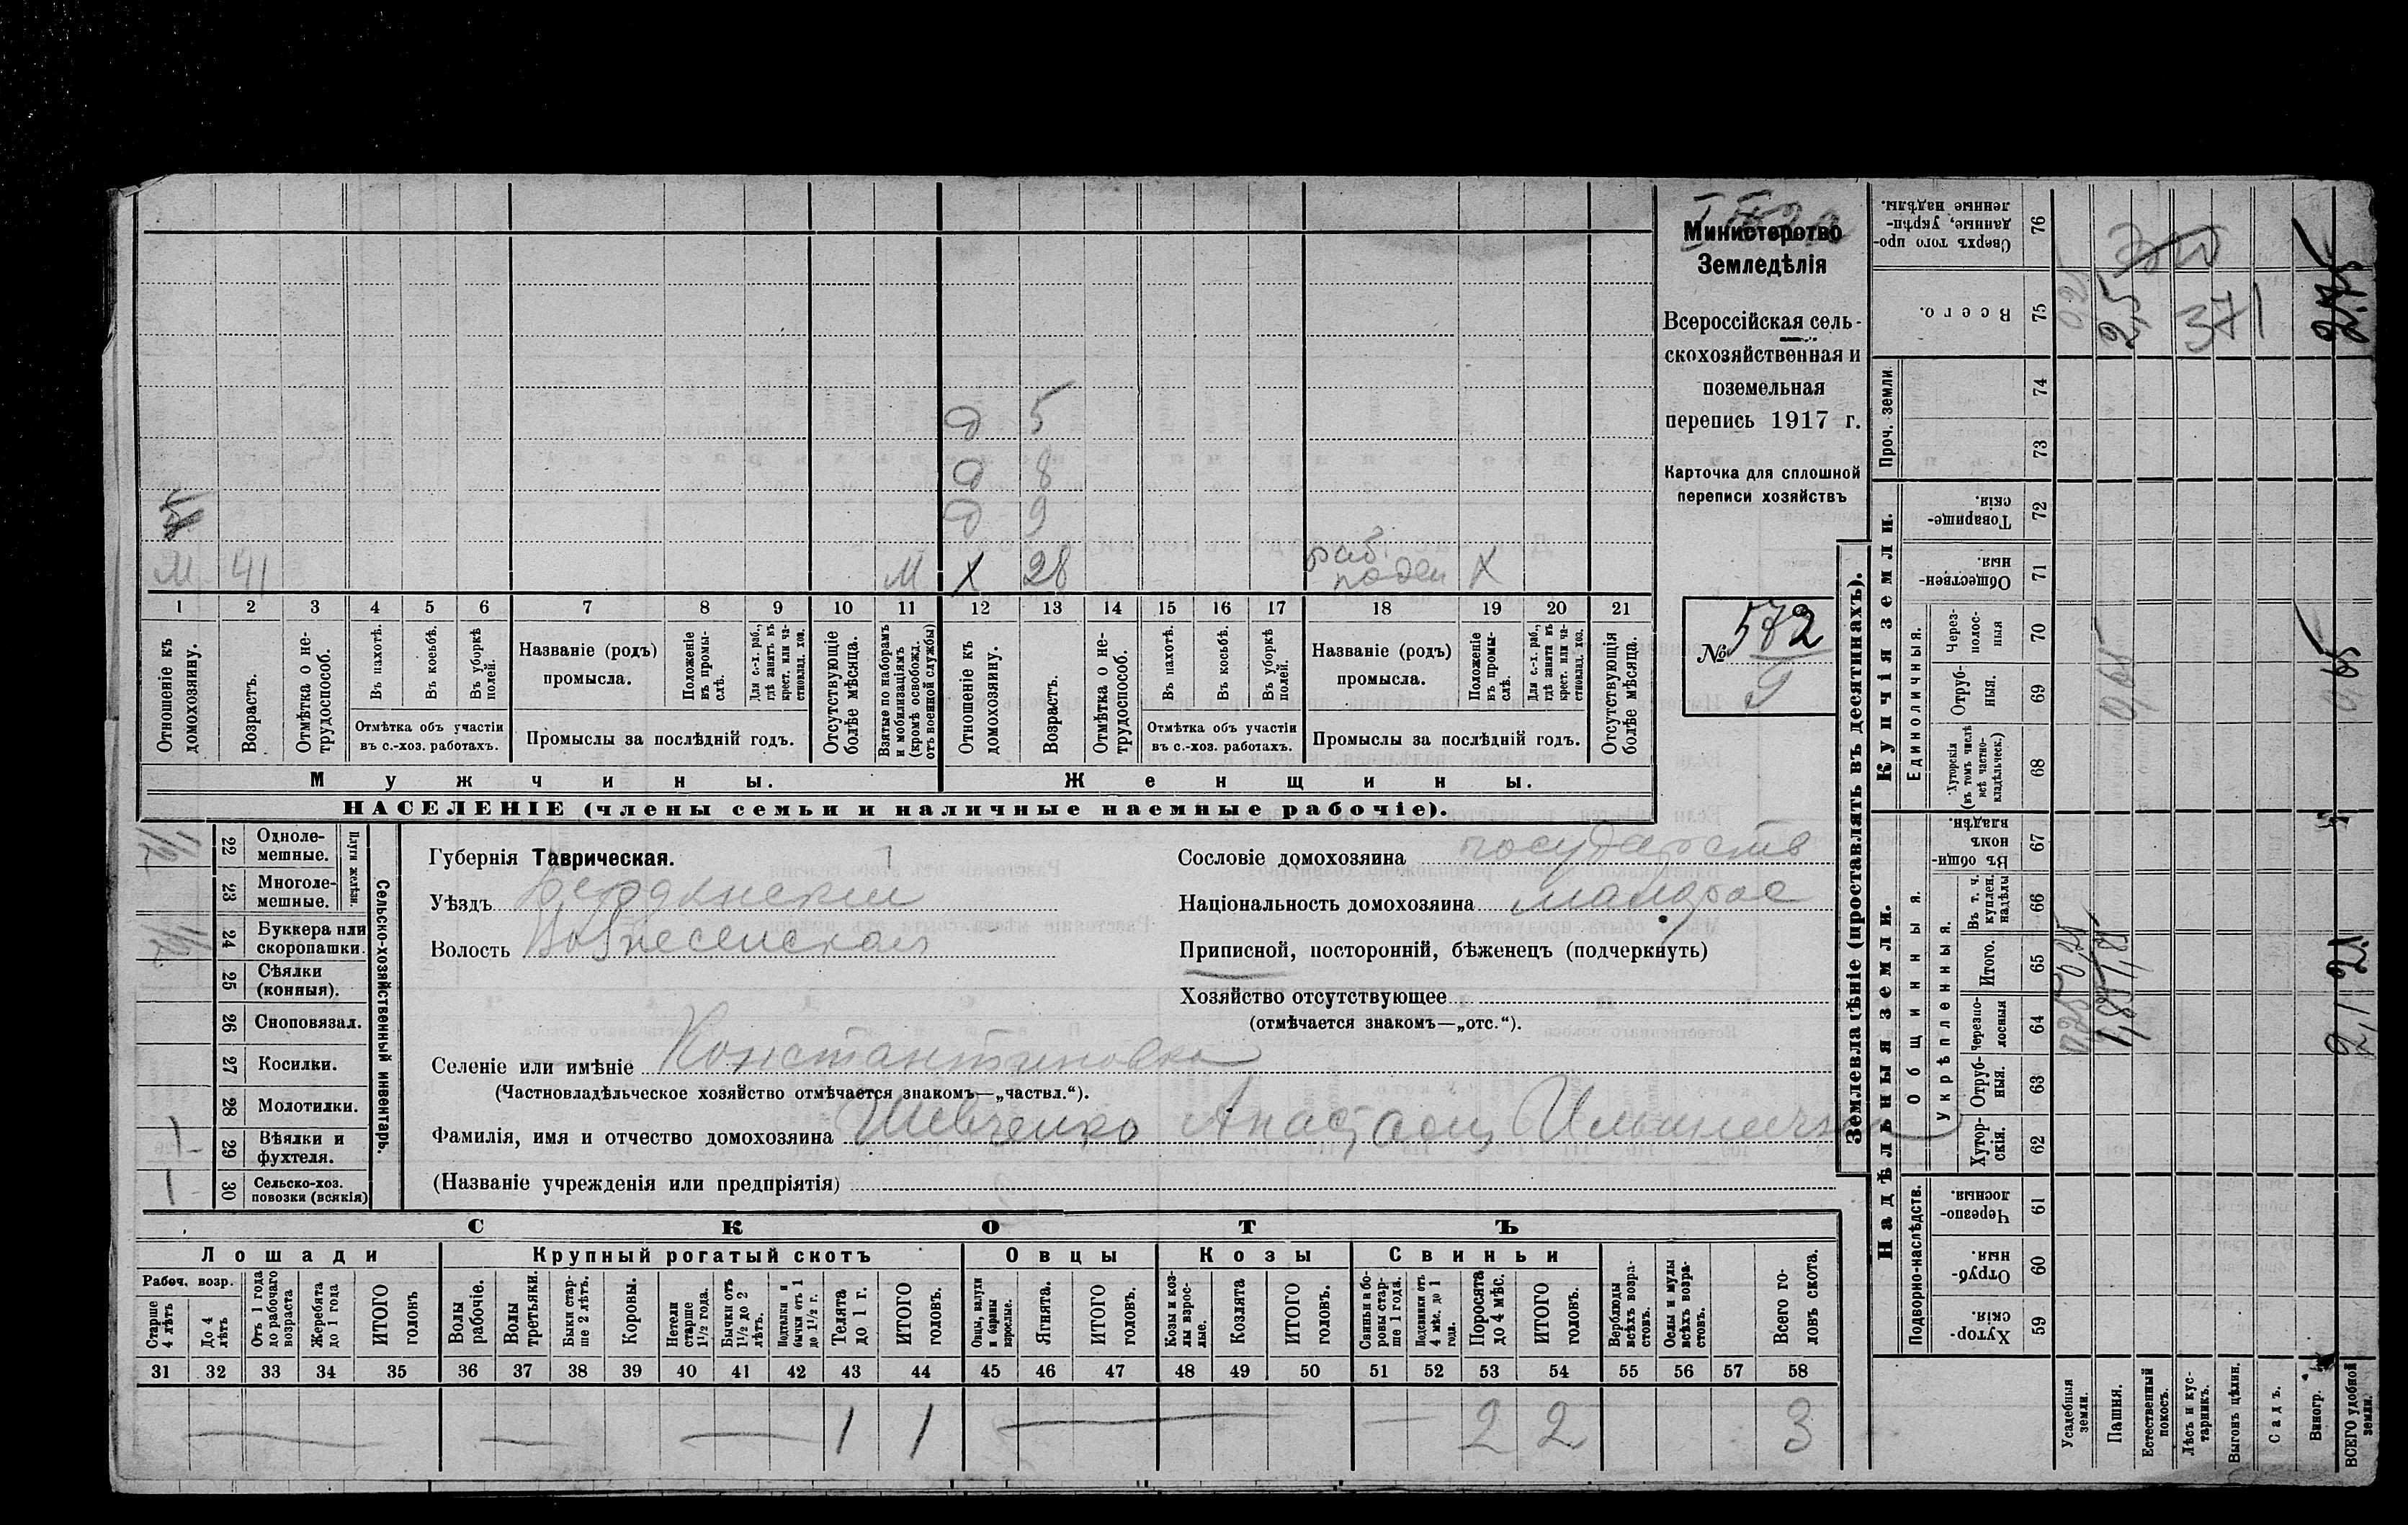 Министерство
Земледѣлія
Всероссійская сель-
скохозяйственная и
поземельная
перепись 1917 г.
Карточка для сплошной
переписи хозяйствъ
№ 572
д 5
д 8
д 9
М 41 М Х 28 раб. поден Х
1 2 3 4 5 6 7 8 9 10 11 12 13 14 15 16 17 18 19 20 21
Отношеніе къ домохозяину.
Возрастъ.
Отмѣтка о не-трудоспособ.
Въ пахотѣ.
Въ косьбѣ.
Въ уборкѣ полей.
Отмѣтка объ участіи
въ с.-хоз. работахъ.
Названіе (родъ)
промысла.
Положеніе въ промы-слѣ.
Для с.-х. раб., гдѣ занятъ въ крест. или ча-стновлад. хоз.
Промыслы за послѣдній годъ.
Отсутствующіе болѣе мѣсяца.
Взятые по наборамъ и мобилизаціямъ (кромѣ освобожд. отъ военной службы)
Отношеніе къ домохозяину.
Возрастъ.
Отмѣтка о не-трудоспособ.
Въ пахотѣ.
Въ косьбѣ.
Въ уборкѣ полей.
Отмѣтка объ участіи
въ с.-хоз. работахъ.
Названіе (родъ)
промысла.
Положеніе въ промы-слѣ.
Для с.-х. раб., гдѣ занята въ крест. или ча-стновлад. хоз.
Промыслы за послѣдній годъ.
Отсутствующія болѣе мѣсяца.
Мужчины. Женщины.
НАСЕЛЕНІЕ (члены семьи и наличные наемные рабочіе).
Сельско-хозяйственный инвентарь.
Плуги желѣзн.
22 Одноле-мешные.
23 Многоле-мешные.
24 Буккера или скоропашки.
25 Сѣялки (конныя).
26 Сноповязал.
27 Косилки.
28 Молотилки.
1 29 Вѣялки и фухтеля.
1 30 Сельско-хоз. повозки (всякія)
Губернія Таврическая.
Уѣздъ Бердянскій
Волость Вознесенская
Сословіе домохозяина государств
Національность домохозяина малорос
Приписной, посторонній, бѣженецъ (подчеркнуть)
Хозяйство отсутствующее
(отмѣчается знакомъ—„отс.“).
Селеніе или имѣніе Константиновка
(Частновладѣльческое хозяйство отмѣчается знакомъ—„частвл.“).
Фамилія, имя и отчество домохозяина Шевченко
(Названіе учрежденія или предпріятія)
СКОТЪ
Лошади Крупный рогатый скотъ Овцы Козы Свиньи
Рабоч. возр.
Старше 4 лѣтъ
До 4 лѣтъ
Отъ 1 года до рабочаго возраста
Жеребята до 1 года
ИТОГО головъ
Волы рабочіе.
Волы третьяки.
Быки стар-ше 2 лѣтъ.
Коровы.
Нетели старше 1½ года.
Бычки отъ 1½ до 2 лѣтъ.
Подтелки и бычки отъ 1 до 1½ г.
Телята до 1 г.
ИТОГО головъ.
Овцы, валухи и бараны взрослые.
Ягнята.
ИТОГО головъ.
Козы и коз-лы взрос-лые.
Козлята
ИТОГО головъ.
Свиньи и бо-ровы стар-ше 1 года.
Подсвинки отъ 4 мѣс. до 1 года.
Поросята до 4 мѣс.
ИТОГО головъ.
Верблюды всѣхъ возра-стовъ.
Ослы и мулы всѣхъ возра-стовъ.
Всего го-ловъ скота.
31 32 33 34 35 36 37 38 39 40 41 42 43 44 45 46 47 48 49 50 51 52 53 54 55 56 57 58
— — — 1 1 — — 2 2 3
Землевладѣніе (проставлять въ десятинахъ).
Надѣльныя земли. Купчія земли. Проч. земли.
Подворно-наслѣдств.
Общинныя.
Укрѣпленныя.
Единоличныя.
Хутор-скія. 59
Отруб-ныя. 60
Черезпо-лосныя. 61
Хутор-скія. 62
Отруб-ныя. 63
Черезпо-лосныя 64
Итого. 65
Въ т. ч. куплен. надѣлы 66
Въ общи-номъ владѣн. 67
Хуторскія (въ томъ числѣ всѣ частно-владѣльческ.) 68
Отруб-ныя. 69
Через-полос-ныя 70
Обществен-ныя. 71
Товарище-скія. 72
73
74
Всего. 75
Сверхъ того про-данные, укрѣп-ленные надѣлы. 76
Усадебныя земли. 0,25 0,25
Пашня. 1,85 1,85 0,65 2,5
Естественный покосъ.
Лѣсъ и кус-тарникъ. 371
Выгонъ цѣлин.
Садъ.
Виногр.
ВСЕГО удобной земли. 2,1 2,1 0,65 2,75